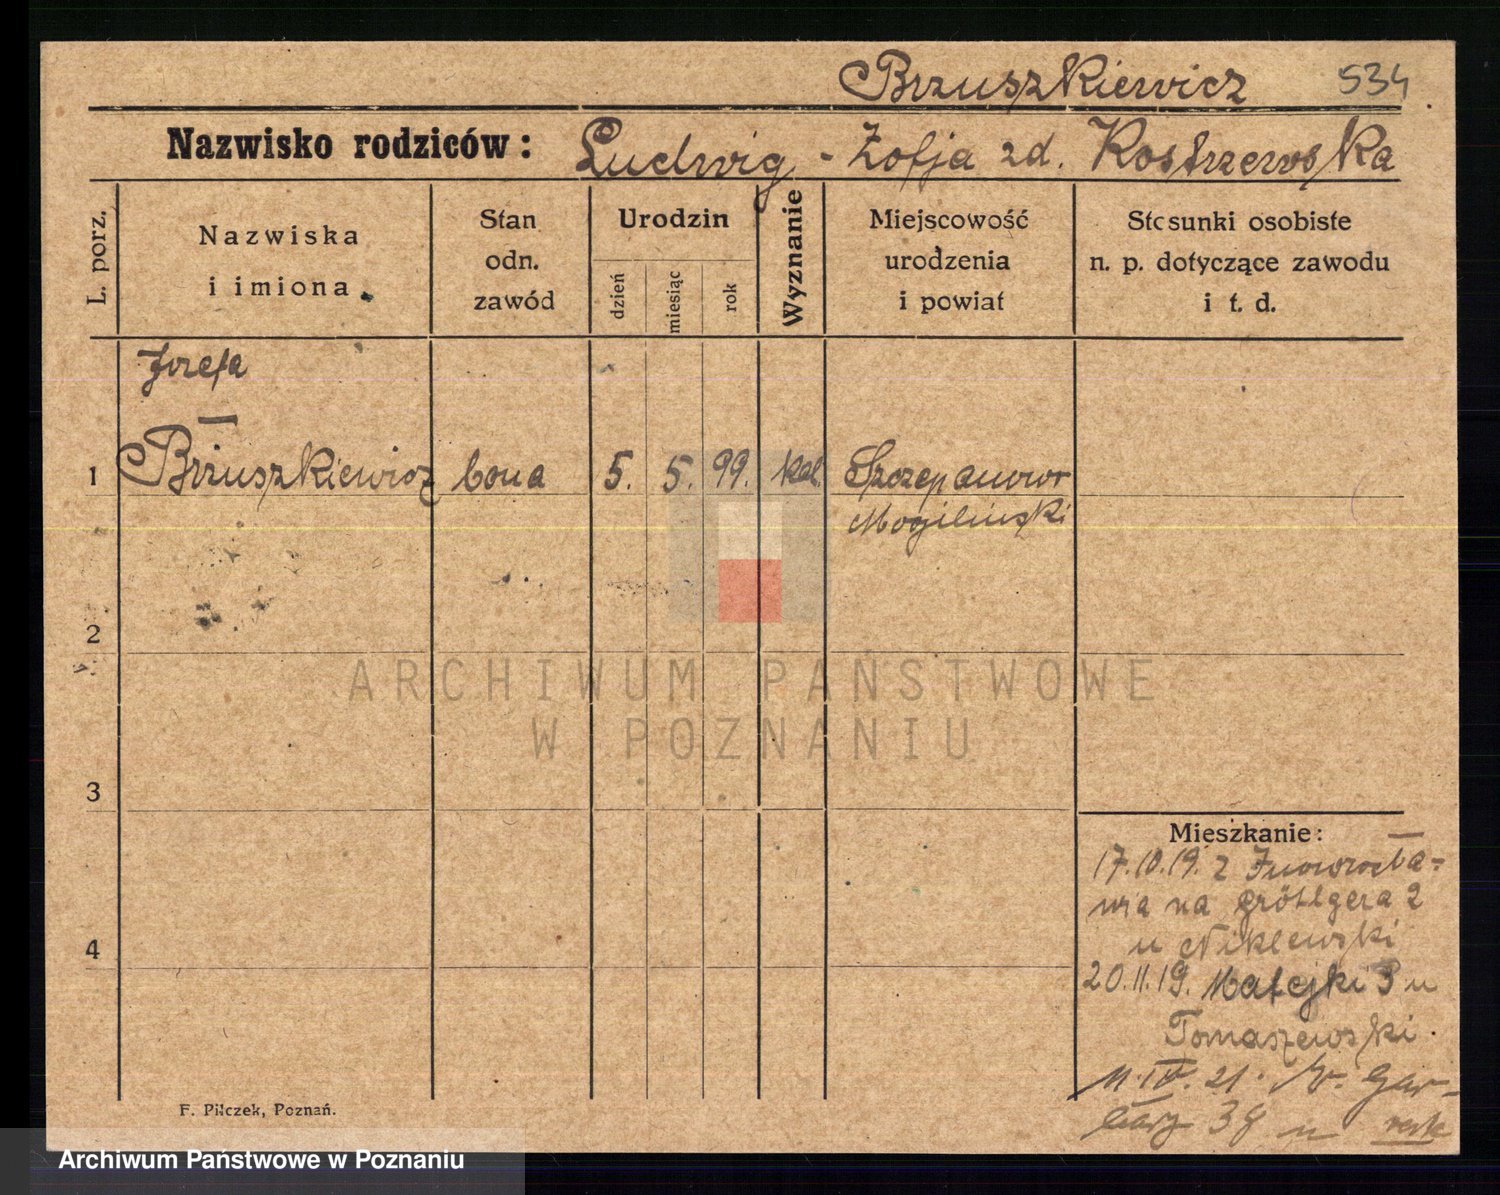 Brzuszkiewicz 534
Nazwisko rodziców: Ludwig - Zofja zd. Kostrzewska
L. porz.
Nazwiska
i imiona
Stan
odn.
zawód
Urodzin
dzień
miesiąc
rok
Wyznanie
Miejscowość
urodzenia
i powiat
Stosunki osobiste
n. p. dotyczące zawodu
i t. d.
Jozefa
1 Brzuszkiewicz bona 5. 5. 99. kat. Szczepanowo
Mogilinski
2
ARCHIWUM PAŃSTWOWE
W POZNANIU
3
4
Mieszkanie:
17.10.19. z Inowrocła-
wia na Gröttgera 2
u Niklewski
20.11.19. Matejki 3 u
Tomaszewski.
11.IV.21. W. Gar-
bary 38 u
F. Pilczek, Poznań.
Archiwum Państwowe w Poznaniu